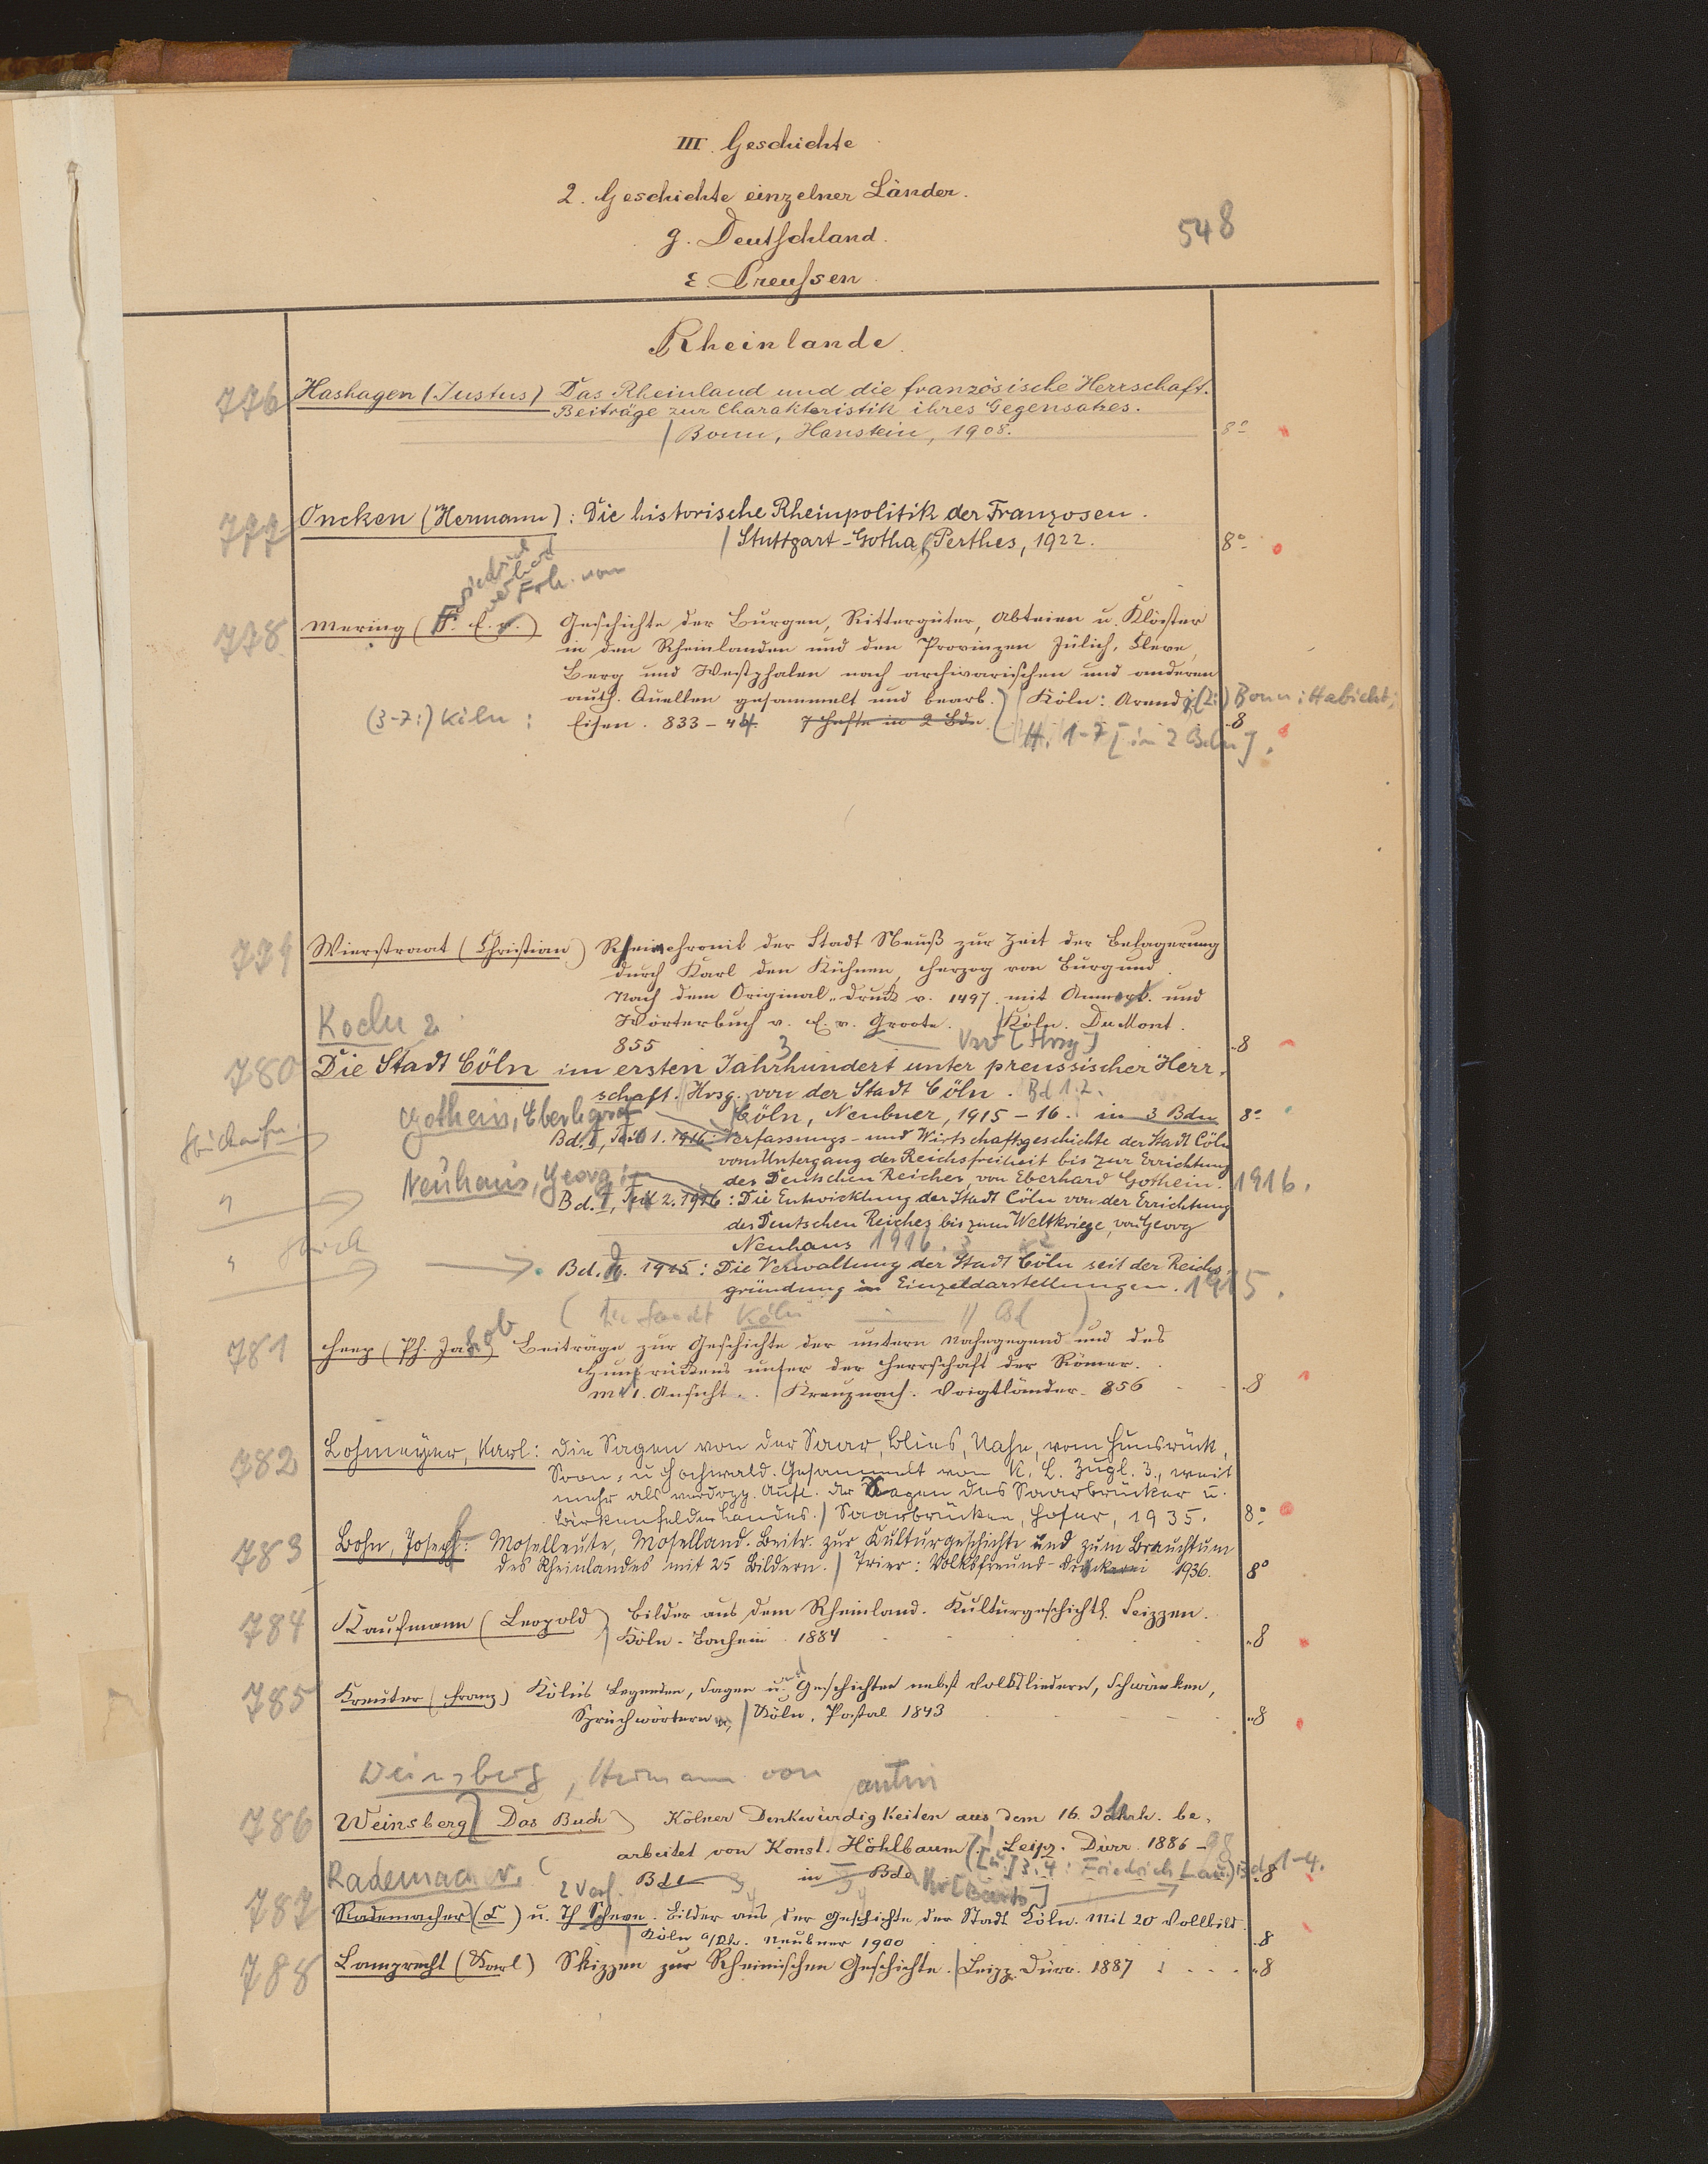 III. Geschichte
2. Geschichte einzelner Länder.
g. Deutschland.
548
ε. Preussen
Rheinlande.
776 Hashagen (Justus) Das Rheinland und die französische Herrschaft.
Beiträge zur Charakteristik ihres Gegensatzes.
/ Bonn, Hanstein, 1908. 8°
777 Oncken (Hermann): Die historische Rheinpolitik der Franzosen.
/ Stuttgart-Gotha, Perthes, 1922. 8°
Friedrich
Frh. von
778 Mering (F. E. v.) Geschichte der Burgen, Rittergüter, Abteien u. Klöster
in den Rheinlanden und den Provinzen Jülich, Cleve,
Berg und Westphalen nach archivarischen und anderen
auth. Quellen gesammelt und bearb. / Köln: Arend; (2:) Bonn: Habicht;
(3-7:) Köln: Eisen. 833-44. 7 Hefte in 2 Bde. 8
H. 1-7 [in 2 Bdn].
779 Wierstraat (Christian) Reimchronik der Stadt Neuß zur Zeit der Belagerung
durch Karl den Kühnen, Herzog von Burgund.
Nach dem Original-Druck v. 1497 mit Anmerk. und
Wörterbuch v. E. v. Groote. / Köln. DuMont.
855 8
[Hrsg]
780 Die Stadt Cöln im ersten Jahrhundert unter preussischer Herr-
schaft. / Hrsg. von der Stadt Cöln. Bd 1.2.
Gothein, Eberhard
Cöln, Neubner, 1915-16. in 3 Bdn 8°
Bd. I, Teil 1. 1916: Verfassungs- und Wirtschaftsgeschichte der Stadt Cöln
vom Untergang der Reichsfreiheit bis zur Errichtung
des Deutschen Reiches, von Eberhard Gothein. 1916.
Neuhaus, Georg:
Bd. I, Teil 2. 1916: Die Entwicklung der Stadt Cöln von der Errichtung
des Deutschen Reiches bis zum Weltkriege, von Georg
Neuhaus 1916.
Bd. II. 1915: Die Verwaltung der Stadt Cöln seit der Reichs-
gründung in Einzeldarstellungen. 1915.
781 Heep (Ph. Jakob) Beiträge zur Geschichte der untern Nahegegend und des
Hunsrückens unter der Herrschaft der Römer.
m 1. Ansicht. / Kreuznach. Voigtländer. 856 8
782 Lohmeyer, Karl: Die Sagen von der Saar, Blies, Nahe, vom Hunsrück,
Soon- u. Hochwald. Gesammelt von K. L. Zugl. 3., weit
mehr als verdopp. Aufl. der Sagen des Saarbrücker u.
Birkenfelder Landes. / Saarbrücken, Hofer, 1935. 8°
783 Bohn, Joseph: Moselleute, Moselland. Beitr. zur Kulturgeschichte und zum Brauchtum
des Rheinlandes mit 25 Bildern. / Trier: Volksfreund-Druckerei 1936. 8°
784 Kaufmann (Leopold) Bilder aus dem Rheinland. Kulturgeschichtl. Skizzen.
/ Köln. Bachem. 1884 8
785 Kreuter (Franz) Köln's Legenden, Sagen und Geschichten nebst Volksliedern, Schwänken,
Sprüchwörtern / Köln. 1843 8
Weinsberg, Hermann von
786 Weinsberg Das Buch Kölner Denkwürdigkeiten aus dem 16. Jahrh. be-
arbeitet von Konst. Höhlbaum / Leipz. Dürr. 1886-98
[u.] 3.4: Friedrich Lau.) Bd 1-4.
Bd 1 in Bde 8
Rademacher, C
787 Rademacher (C) u. Th Scheve. Bilder aus der Geschichte der Stadt Köln. Mit 20 Vollbild.
/ Köln a/Rh. Neubner 1900 8
788 Lamprecht (Karl) Skizzen zur Rheinischen Geschichte. / Leipz. Dürr. 1887 8